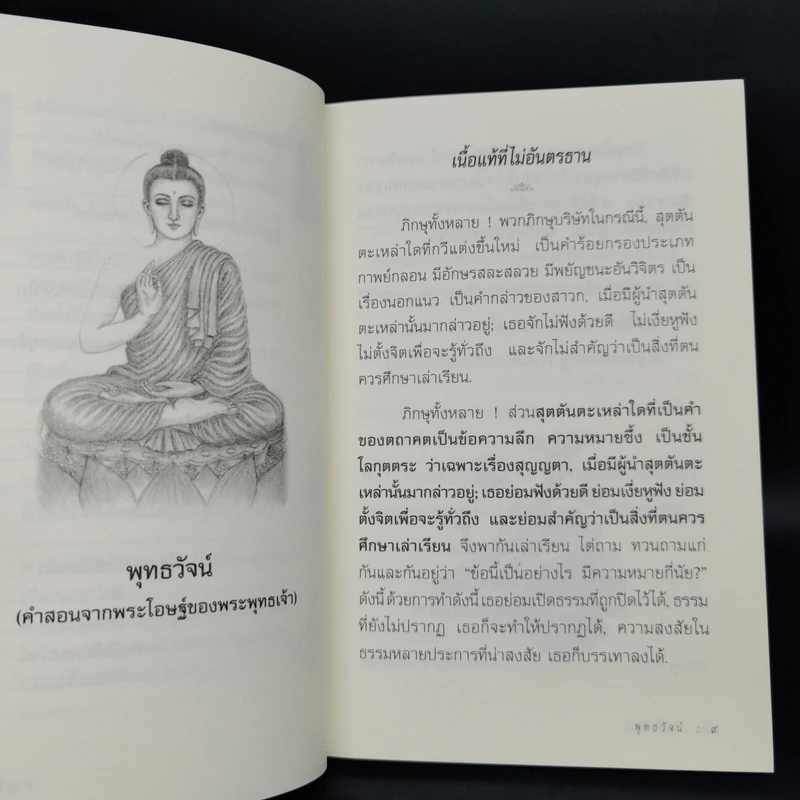 พุทธวัจน์
(คำสอนจากพระโอษฐ์ของพระพุทธเจ้า)
เนื้อแท้ที่ไม่อันตรธาน
ภิกษุทั้งหลาย ! พวกภิกษุบริษัทในกรณีนี้, สุตตัน
ตะเหล่าใดที่กวีแต่งขึ้นใหม่ เป็นคำร้อยกรองประเภท
กาพย์กลอน มีอักษรสละสลวย มีพยัญชนะอันวิจิตร เป็น
เรื่องนอกแนว เป็นคำกล่าวของสาวก, เมื่อมีผู้นำสุตตัน
ตะเหล่านั้นมากล่าวอยู่; เธอจักไม่ฟังด้วยดี ไม่เงี่ยหูฟัง
ไม่ตั้งจิตเพื่อจะรู้ทั่วถึง และจักไม่สำคัญว่าเป็นสิ่งที่ตน
ควรศึกษาเล่าเรียน.
ภิกษุทั้งหลาย ! ส่วนสุตตันตะเหล่าใดที่เป็นคำ
ของตถาคตเป็นข้อความลึก ความหมายซึ้ง เป็นชั้น
โลกุตตระ ว่าเฉพาะเรื่องสุญญตา, เมื่อมีผู้นำสุตตันตะ
เหล่านั้นมากล่าวอยู่; เธอย่อมฟังด้วยดี ย่อมเงี่ยหูฟัง ย่อม
ตั้งจิตเพื่อจะรู้ทั่วถึง และย่อมสำคัญว่าเป็นสิ่งที่ตนควร
ศึกษาเล่าเรียน จึงพากันเล่าเรียน ไต่ถาม ทวนถามแก่
กันและกันอยู่ว่า “ข้อนี้เป็นอย่างไร มีความหมายกี่นัย?”
ดังนี้ ด้วยการทำดังนี้ เธอย่อมเปิดธรรมที่ถูกปิดไว้ได้, ธรรม
ที่ยังไม่ปรากฏ เธอก็จะทำให้ปรากฏได้, ความสงสัยใน
ธรรมหลายประการที่น่าสงสัย เธอก็บรรเทาลงได้.
พุทธวัจน์ : ๙